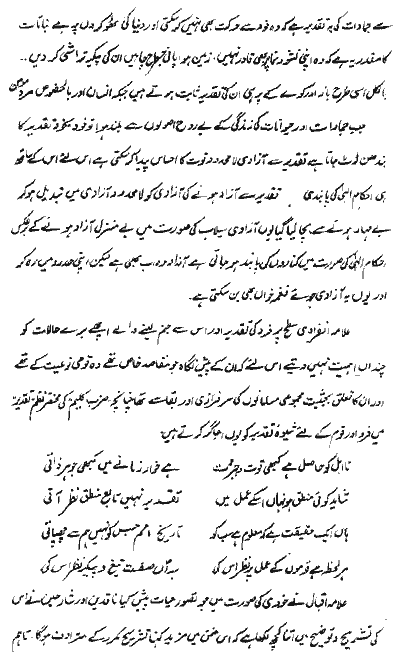 سے جمادات کی یہ تقدیر ہے کہ وہ خود سے حرکت بھی نہیں کر سکتی اور دنیا کی ٹھوکروں پہ ہے نباتات
کا مقدر یہ ہے کہ وہ اپنی نشوونما پر بھی قادر نہیں زمین ہوا پانی جس طرح چاہیں ان کی پیکر تراشی کر دیں ۔۔
بالکل اسی طرح باز اور کوے کے پر ہی ان کی تقدیر ثابت ہوتے ہیں جبکہ انسان اور بالخصوص مرد مومن
جب جمادات اور حیوانات کی زندگی کے بے روح اصولوں سے بلند ہوا تو خود بخود تقدیر کا
بندھن ٹوٹ جاتا ہے تقدیر سے آزادی لامحدود قوت کا احساس پیدا کر سکتی ہے اس لئے اس کے ساتھ
ہی احکام الٰہی کی پابندی تقدیر سے آزاد ہونے کی آزادی کو لامحدود آزادی میں تبدیل ہو کر
بے مہار ہونے سے بچا لیا گیا یوں آزادی سیلاب کی صورت میں بے منزل آزاد ہونے کے برعکس
احکام الٰہی کی صورت میں کناروں کی پابند ہو جاتی ہے آزاد وہ اب بھی ہے لیکن اپنی حدود میں رہ کر
اور یوں یہ آزادی جوئے نغمہ خواں بھی بن سکتی ہے۔
علامہ انفرادی سطح پر فرد کی تقدیر اور اس سے جنم لینے والے اچھے برے حالات کو
چنداں اہمیت نہیں دیتے اس لئے کہ ان کے پیش نگاہ جو مقاصد خاص تھے وہ قومی نوعیت کے تھے
اور ان کا تعلق بحیثیت مجموعی مسلمانوں کی سرفرازی اور بقا سے تھا چنانچہ ضرب کلیم کی مختصر نظم تقدیر
میں فرد اور قوم کے لئے شیوۂ تقدیر کو یوں اجاگر کرتے ہیں:
نااہل کو حاصل ہے کبھی قوت و جبروت ہے خوار زمانے میں کبھی جوہر ذاتی
شاید کوئی منطق ہو نہاں اس کے عمل میں تقدیر نہیں تابع منطق نظر آتی
ہاں ایک حقیقت ہے کہ معلوم ہے سب کو تاریخ امم جس کو نہیں ہم سے چھپاتی
ہر لحظہ ہے قوموں کے عمل پر نظر اس کی براں صفت تیغ دو پیکر نظر اس کی
علامہ اقبال نے خودی کی صورت میں جو تصور حیات پیش کیا ناقدین اور شارحین نے اس
کی تشریح و توضیح میں اتنا کچھ لکھا ہے کہ اس ضمن میں مزید کہنا تشریح مکرر کے مترادف ہوگا۔ تاہم